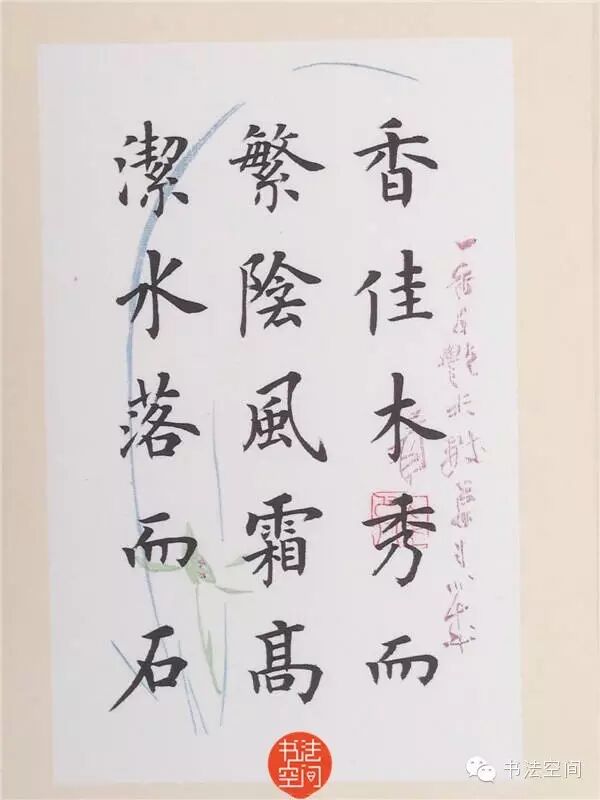 香佳木秀而
繁陰風霜高
潔水落而石
书法空间
书法空间